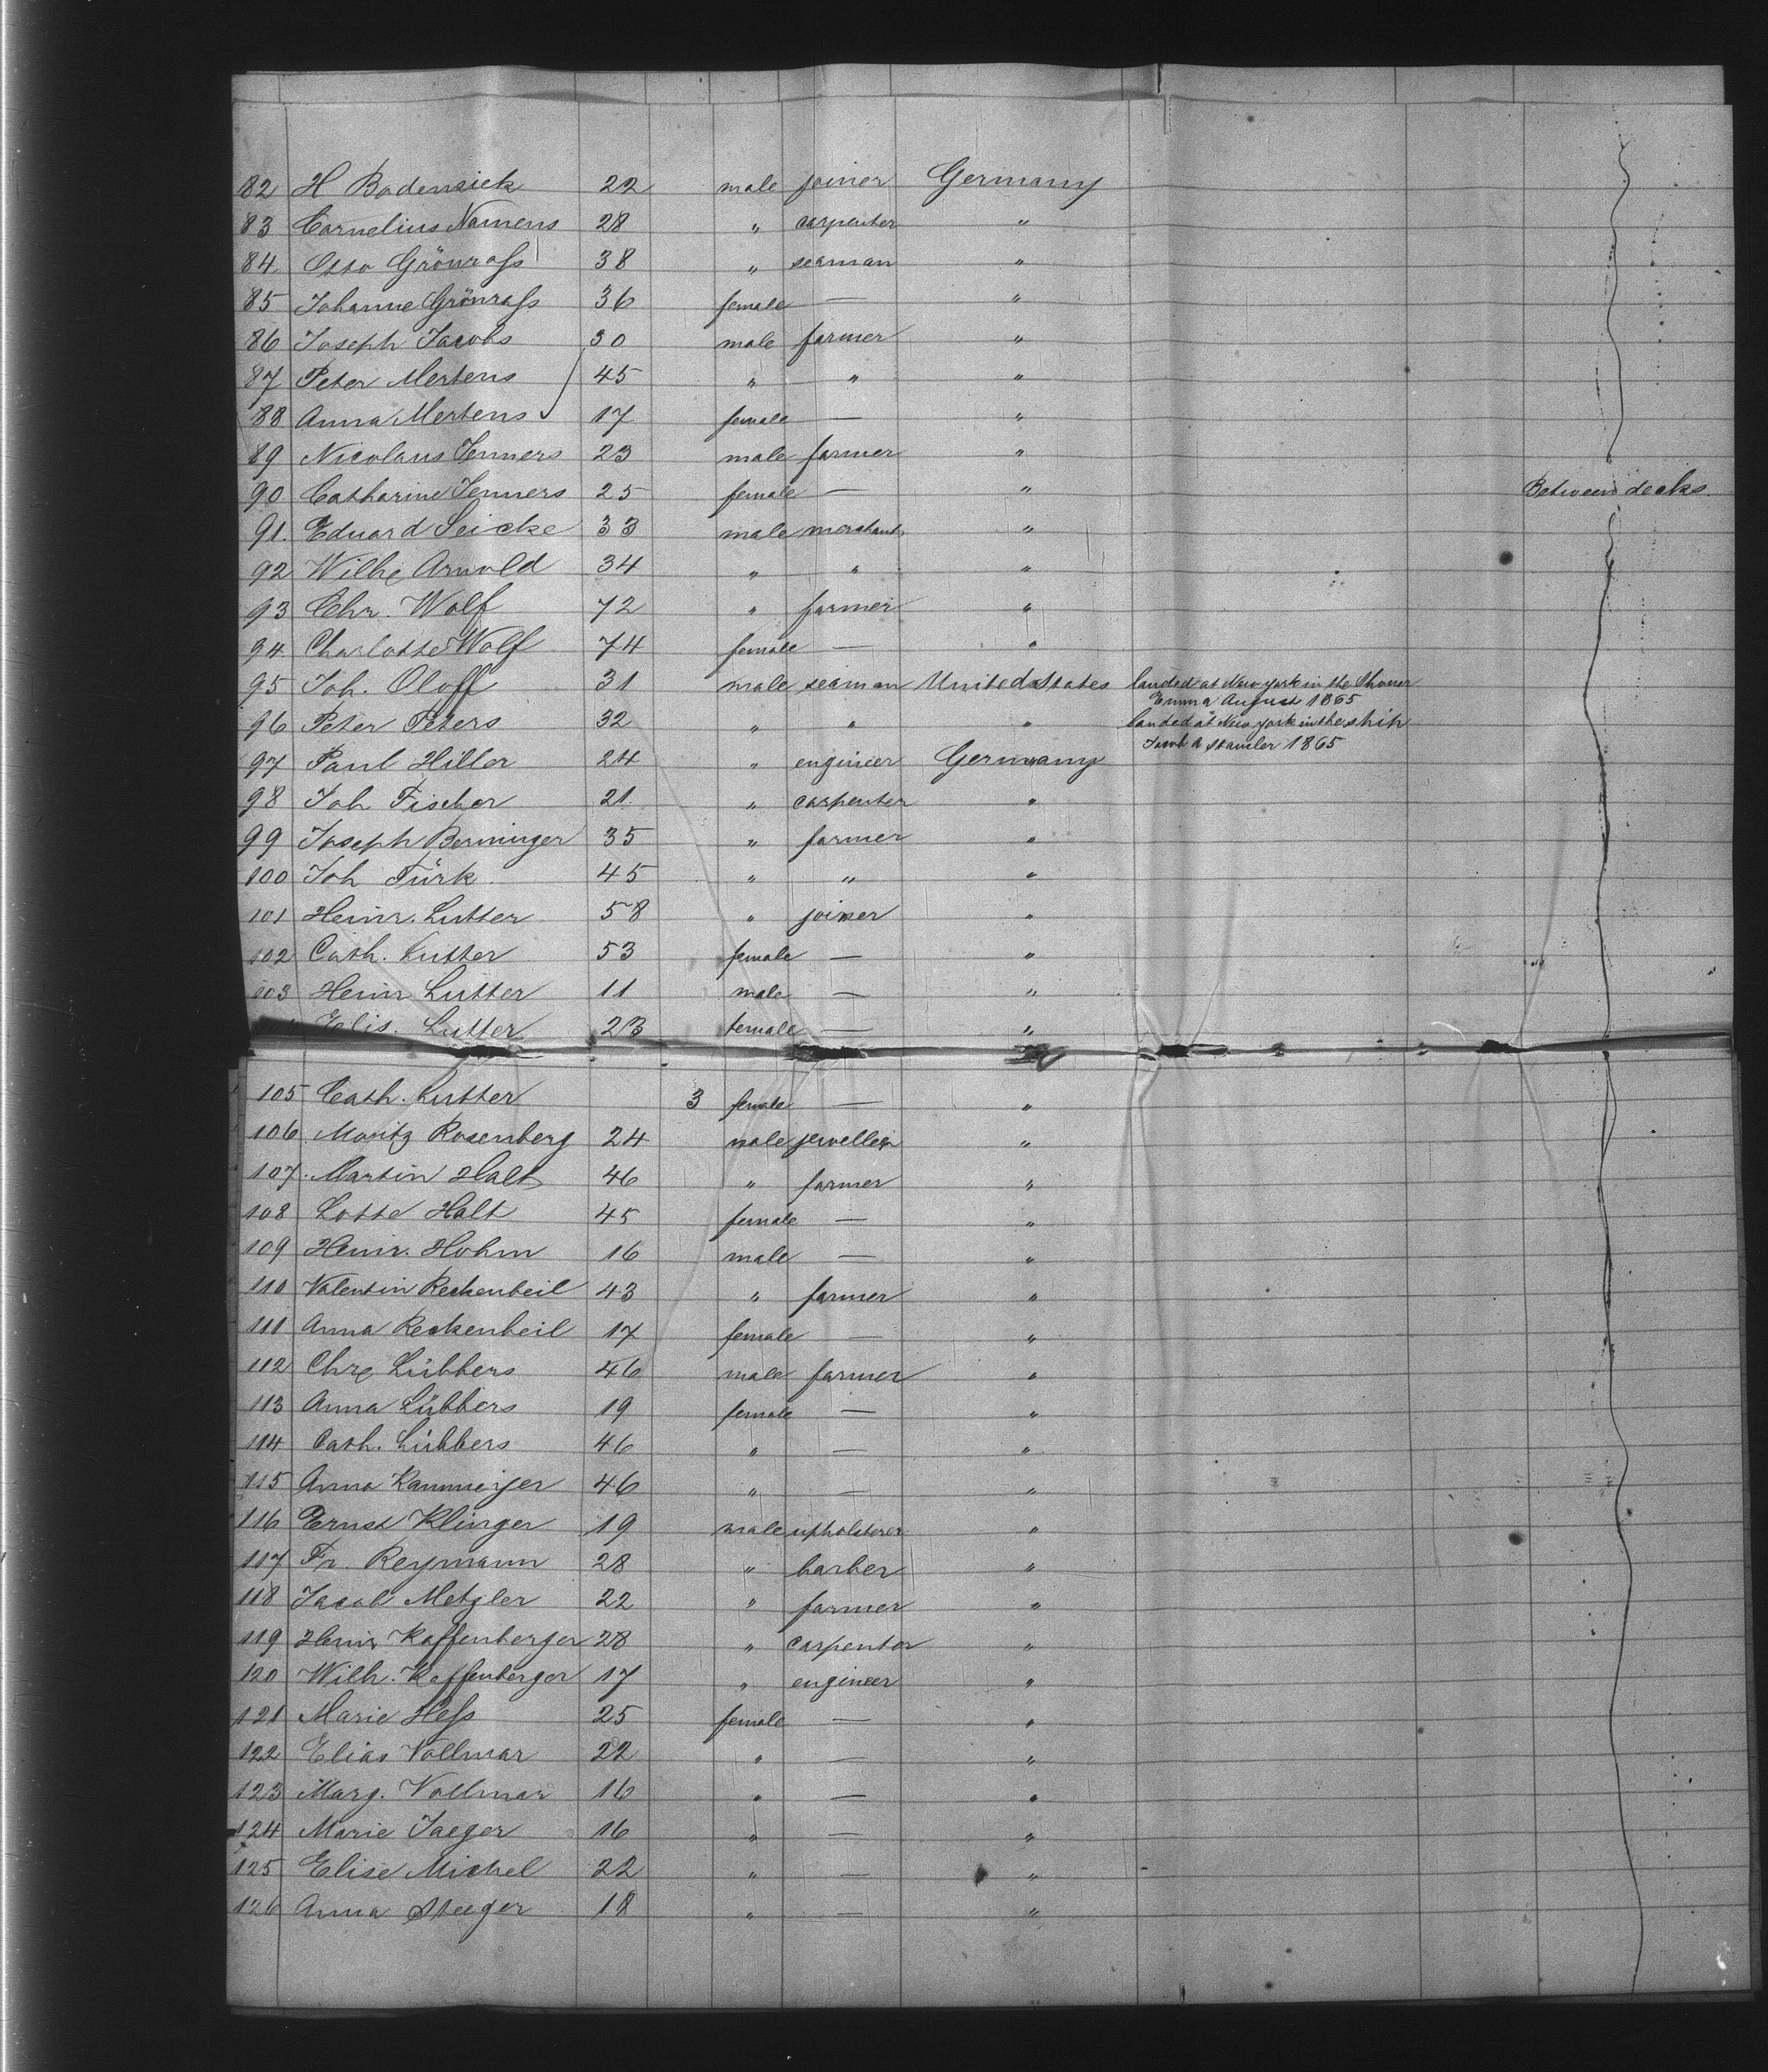 82 H Badensiek 22 male joiner Germany
83 Cornelius Namens 28 " carpenter "
84. Otto Grönrass 38 " seaman "
85 Johanne Grönrass 36 female — "
86 Joseph Jacobs 30 male farmer "
87 Peter Mertens 45 " " "
88 Anna Mertens 17 female — "
89 Nicolaus Jenners 23 male farmer "
90 Catharine Jenners 25 female — " Between decks.
91. Eduard Seicke 33 male merchant "
92 Wilh. Arnold 34 " " "
93 Chr. Wolf 72 " farmer "
94 Charlotte Wolf 74 female — "
95 Joh. Oloff 31 male seaman United States landed at New york in the
Emma August 1865
96 Peter Peters 32 " " " landed at New york in the ship
Jacob A Stamler 1865
97 Paul Hiller 24 " engineer Germany
98 Joh Fischer 21. " carpenter "
99 Joseph Berninger 35 " farmer "
100 Joh Türk 45 " " "
101 Heinr. Lutter 58 " joiner "
102 Cath. Lutter 53 female — "
103 Heinr Lutter 11 male — "
Elis. Lutter 23 female — "
105 Cath. Lutter 3 female — "
106 Moritz Rosenberg 24 male jeweller "
107. Martin Halt 46 " farmer "
108 Lotte Halt 45 female — "
109 Heinr. Hohm 16 male — "
110 Valentin Reckenbeil 43 " farmer "
111 Anna Reckenbeil 17 female — "
112 Chr. Lübbers 46 male farmer "
113 Anna Lübbers 19 female — "
114 Cath. Lübbers 46 " — "
115 Anna Kammeyer 46 " — "
116 Ernst Klinger 19 male upholsterer "
117 Fr. Reymann 28 " barber "
118 Jacob Metzler 22 " farmer "
119 Heinr Kaffenberger 28 " carpenter "
120 Wilh. Kaffenberger 17 " engineer "
121 Marie Hess 25 female — "
122 Elias Vollmar 22 " — "
123 Marg. Vollmar 16 " — "
124 Marie Jaeger 16 " — "
125 Elise Michel 22 " — "
126 Anna Steeger 18 " — "